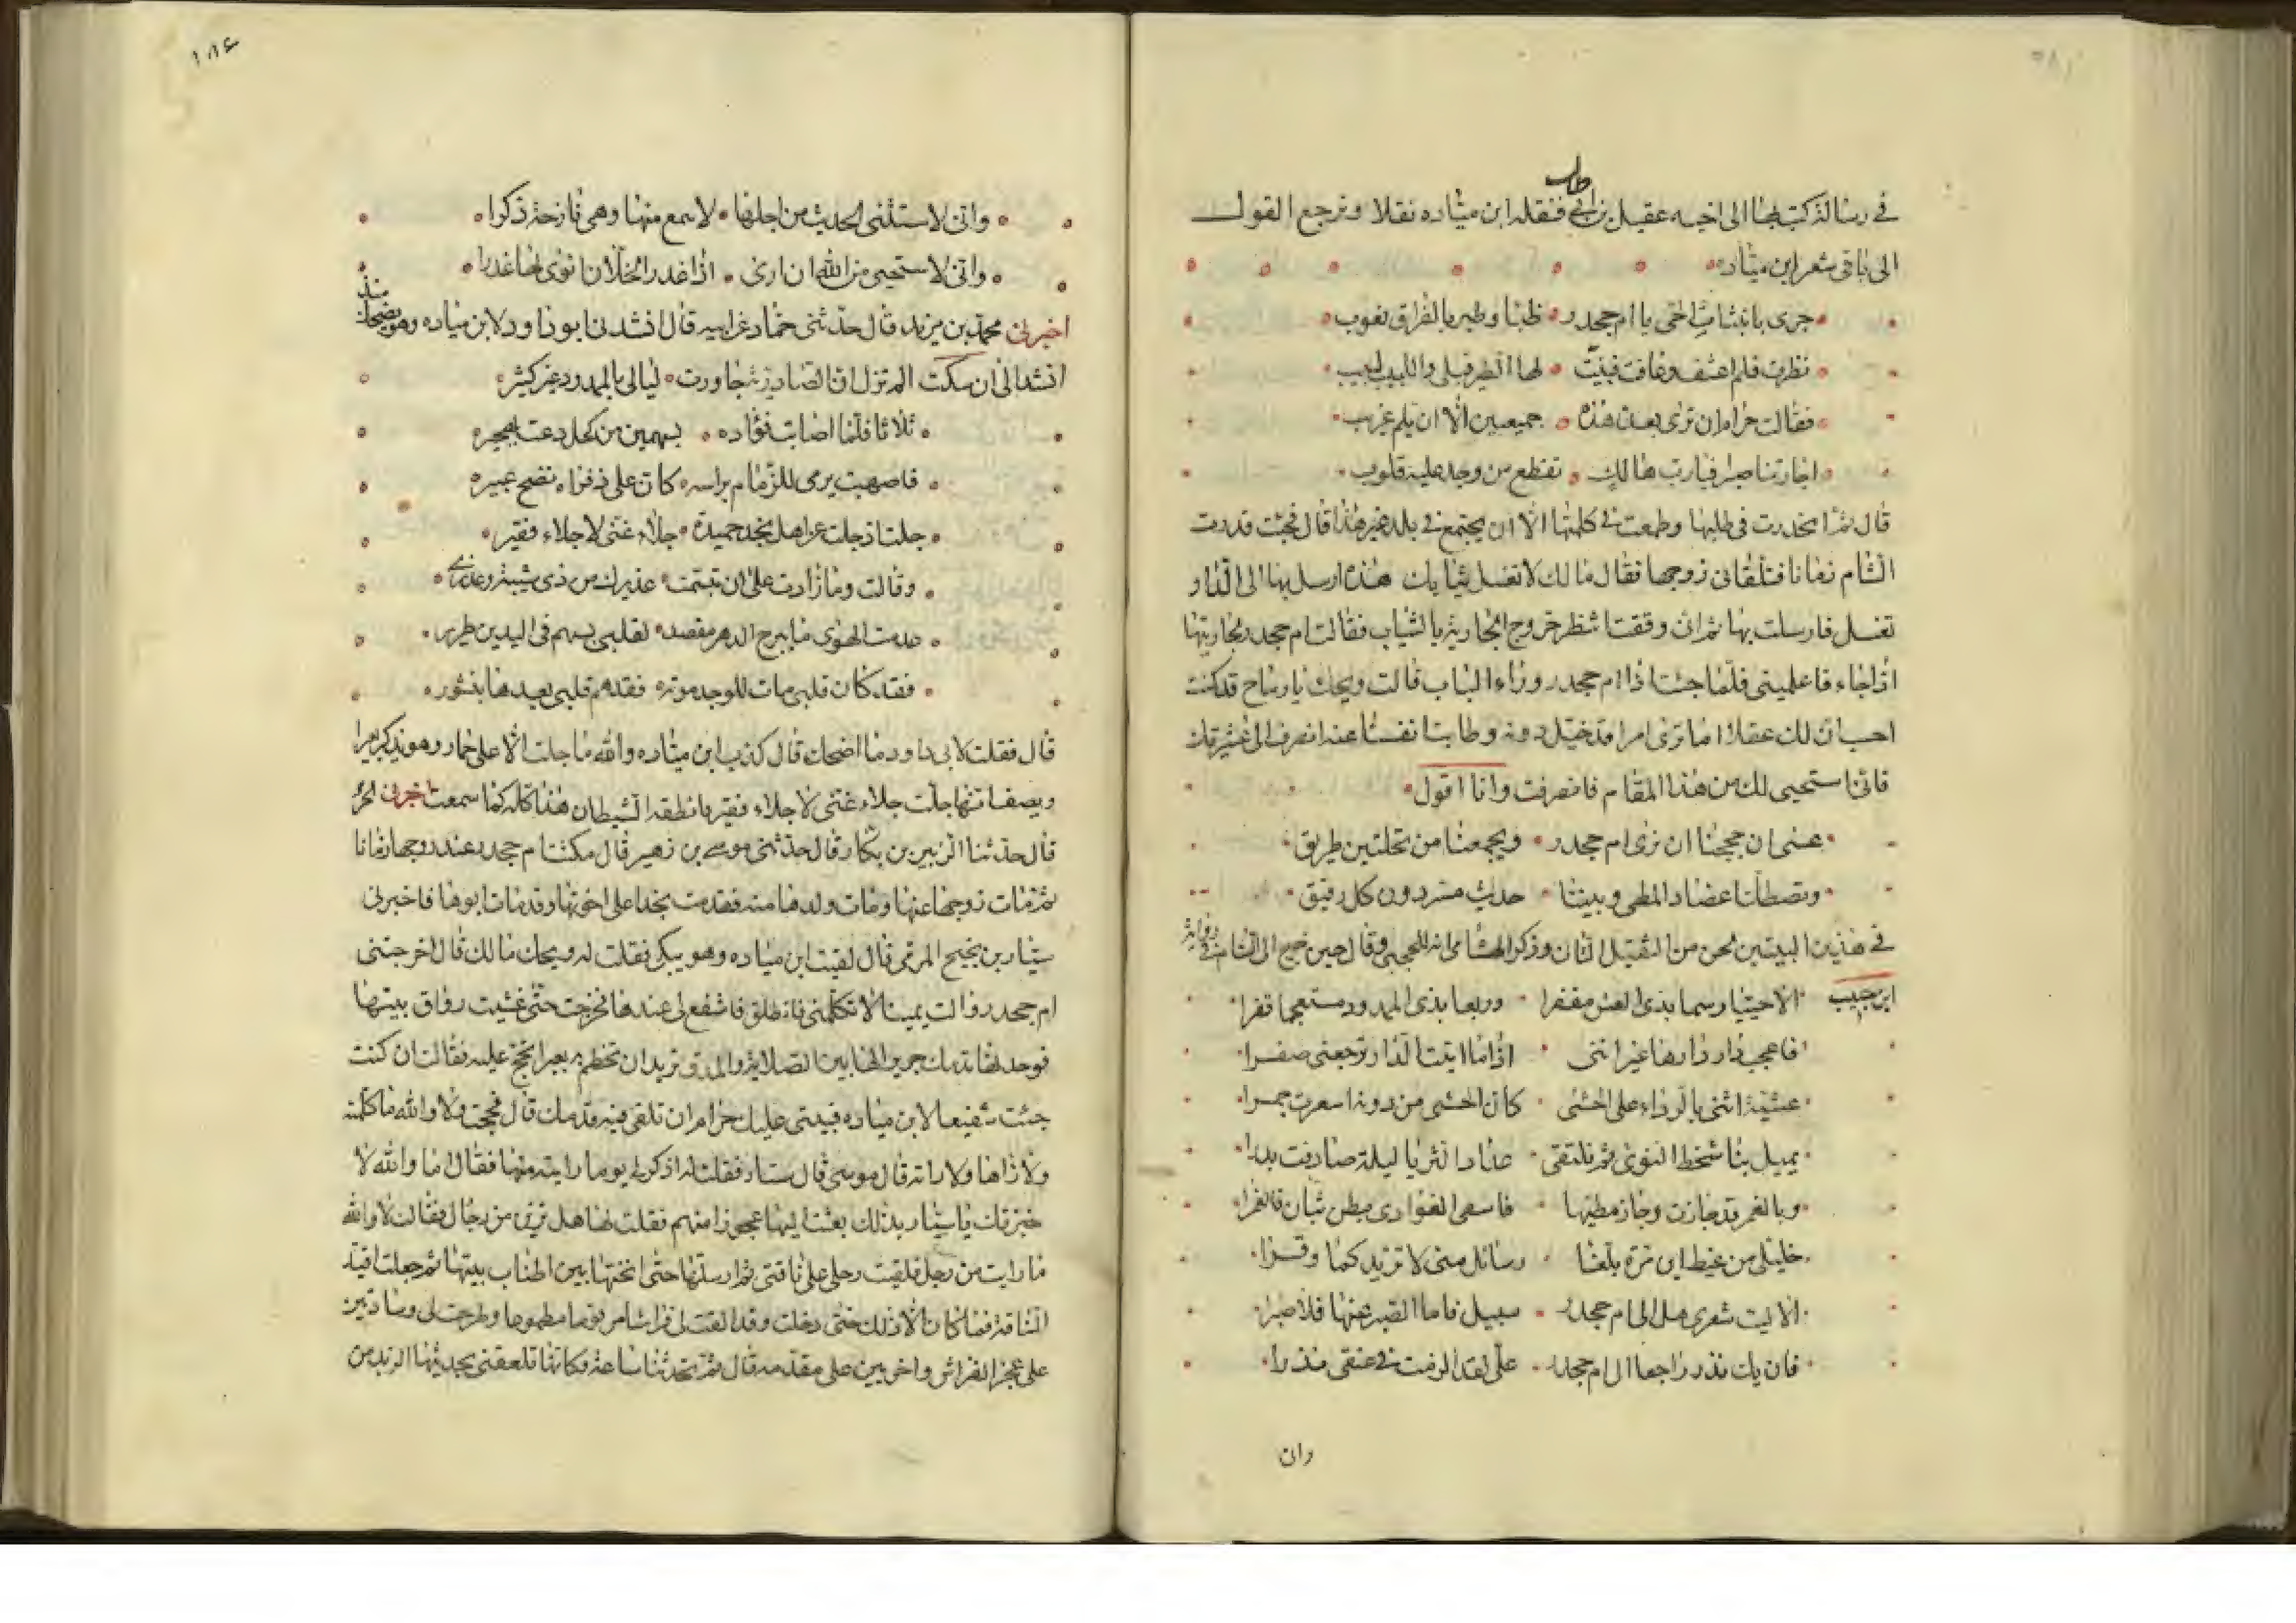 في رسالة كتب بها الى اخيه عقيل بن ابي طالب فنقله ابن مياده نقلا ونرجع القول
الى باقي شعر ابن مياده
جرى بانبتات الحي يا ام جحدر ظبا وطير بالفراق نعوب
نظرت فلم اعتف وعافت فبينت لها الطير قبلي واللبيب لبيب
فقالت حرام ان نرى بعد هذه جميعين الا ان يلم غريب
اجارتنا صبرا فيارب هالك تقطع من وجد عليه قلوب
قال ثم انحدرت في طلبها وطمعت في كلمتها الا ان يجتمع في بلد غير هذا قال فجئت فدرت
الشام زمانا فتلقاني زوجها فقال ما لك لا تغسل ثيابك هذه ارسل بها الى الدار
تغسل فارسلت بها ثم اني وقفت انتظر خروج الجارية بالثياب فقالت ام جحدر لجاريتها
اذا جاء فاعلميني فلما جئت اذا ام جحدر وراء الباب فقالت ويحك يا رماح قد كنت
احسب ان لك عقلا اما ترى امرا قد حيل دونه وطابت انفسنا عنه انصرف الى عشيرتك
فاني استحيي لك من هذا المقام فانصرفت وانا اقول
عسى ان حججنا ان نرى ام جحدر ويجمعنا من نخلتين طريق
وتصطك اعضاد المطي وبيننا حديث مسر دون كل رفيق
في هذين البيتين لحن من الثقيل الثاني وذكر الهشامي انه للحجبي وقال حين خرج الى الشام في رواية
ابن حبيب الا حييا رسما بذي العش مقفرا وربعا بذي الممدور مستعجما قفرا
فاعجب دار دارها غير انني اذا ما اتيت الدار ترجعني صفرا
عشية اثني بالرداء على الحشى كان الحشى من دونه اسعرت جمرا
يميل بنا شحط النوى ثم نلتقي عداد الثريا ليلة صادفت بدرا
وبالغمر قد جازت وجاز مطيها فاسقى الغوادي بطن نيان فالغمرا
خليلي من غيظ ابن مرة بلغا رسائل مني لا تزيد كما وقرا
الا ليت شعري هل الى ام جحدر سبيل فاما الصبر عنها فلا صبرا
فان يك نذر راجعا ال ام جحدر علي لقد اوذمت في عنقي نذرا
وان
١٨٤
واني لاستنشي الحديث من اجلها لاسمع منها وهي نازحة ذكرا
واني لاستحيي من الله ان ارى اذا غدر الخلان انوي لها غدرا
اخبرني محمد بن مزيد قال حدثني حماد عن ابيه قال انشدنا ابو داود لابن مياده وهو يضحك منذ
انشدني الى ان سكت الم تر ان الصاردية جاورت ليالي بالممدور غير كثير
ثلاثا فلما اصابت فؤاده بسهمين من كحل دعت بهجير
فاصهبت يرمي للزمام براسه كان على ذفراه نضح عبير
جلت اذ جلت عن اهل نجد حميدة جلاء غني لا جلاء فقير
وقالت وما زادت على ان تبسمت عذيرك من ذي شيبة وعذيري
عدمت الهوى ما يبرح الدهر مقصدا لقلبي بسهم في اليدين طرير
فقد كان قلبي مات للوجد موتة فقد هم قلبي بعدها بنشور
قال فقلت لابي داود ما اضحك قال كذب ابن مياده والله ما جلت الا على حمار وهو يذكر بعيرا
ويصف انها جلت جلاء غني لا جلاء فقير فانطقه الشيطان هذا كله كما سمعت اخبرني الحرمي
قال حدثنا الزبير بن بكار قال حدثني موسى بن زهير قال مكثت ام جحدر عند زوجها زمانا
ثم مات زوجها عنها ومات ولدها منه فقدمت نجدا على اخوتها وقد مات ابوها فاخبرني
سيار بن نجيح المزني قال لقيت ابن مياده وهو يبكي فقلت له ويحك مالك قال اخرجتني
ام جحدر والت يمينا لا تكلمني فانطلق فاشفع لي عندها فخرجت حتى غشيت رواق بيتها
فوجدتها تدمك جريرا لها بين الصلاية والمدق تريد ان تخطم به بعيرا تحج عليه فقالت ان كنت
جئت شفيعا لابن مياده فبيتي عليك حرام ان تلقي فيه قدمك قال فحجت ولا والله ما كلمته
ولا راها ولا راته قال موسى قال سيار فقلت له اذكر لي يوما رايته منها فقال اما والله لا
خبرتك يا سيار بذلك بعثت اليها عجوزا منهم فقلت لها هل ترين من رجال فقالت لا والله
ما رايت من رجل فالقيت رحلي على ناقتي ثم ارسلتها حتى انختها بين اطناب بيتها ثم جعلت اقيد
الناقة فما كان الا ذلك حتى دخلت وقد القت لي فراشا مرقوما مطموما وطرحت لي وسادتين
على عجز الفراش واخريين على مقدمه قال ثم تحدثنا ساعة وكانما تلعقني بحديثها الرب من